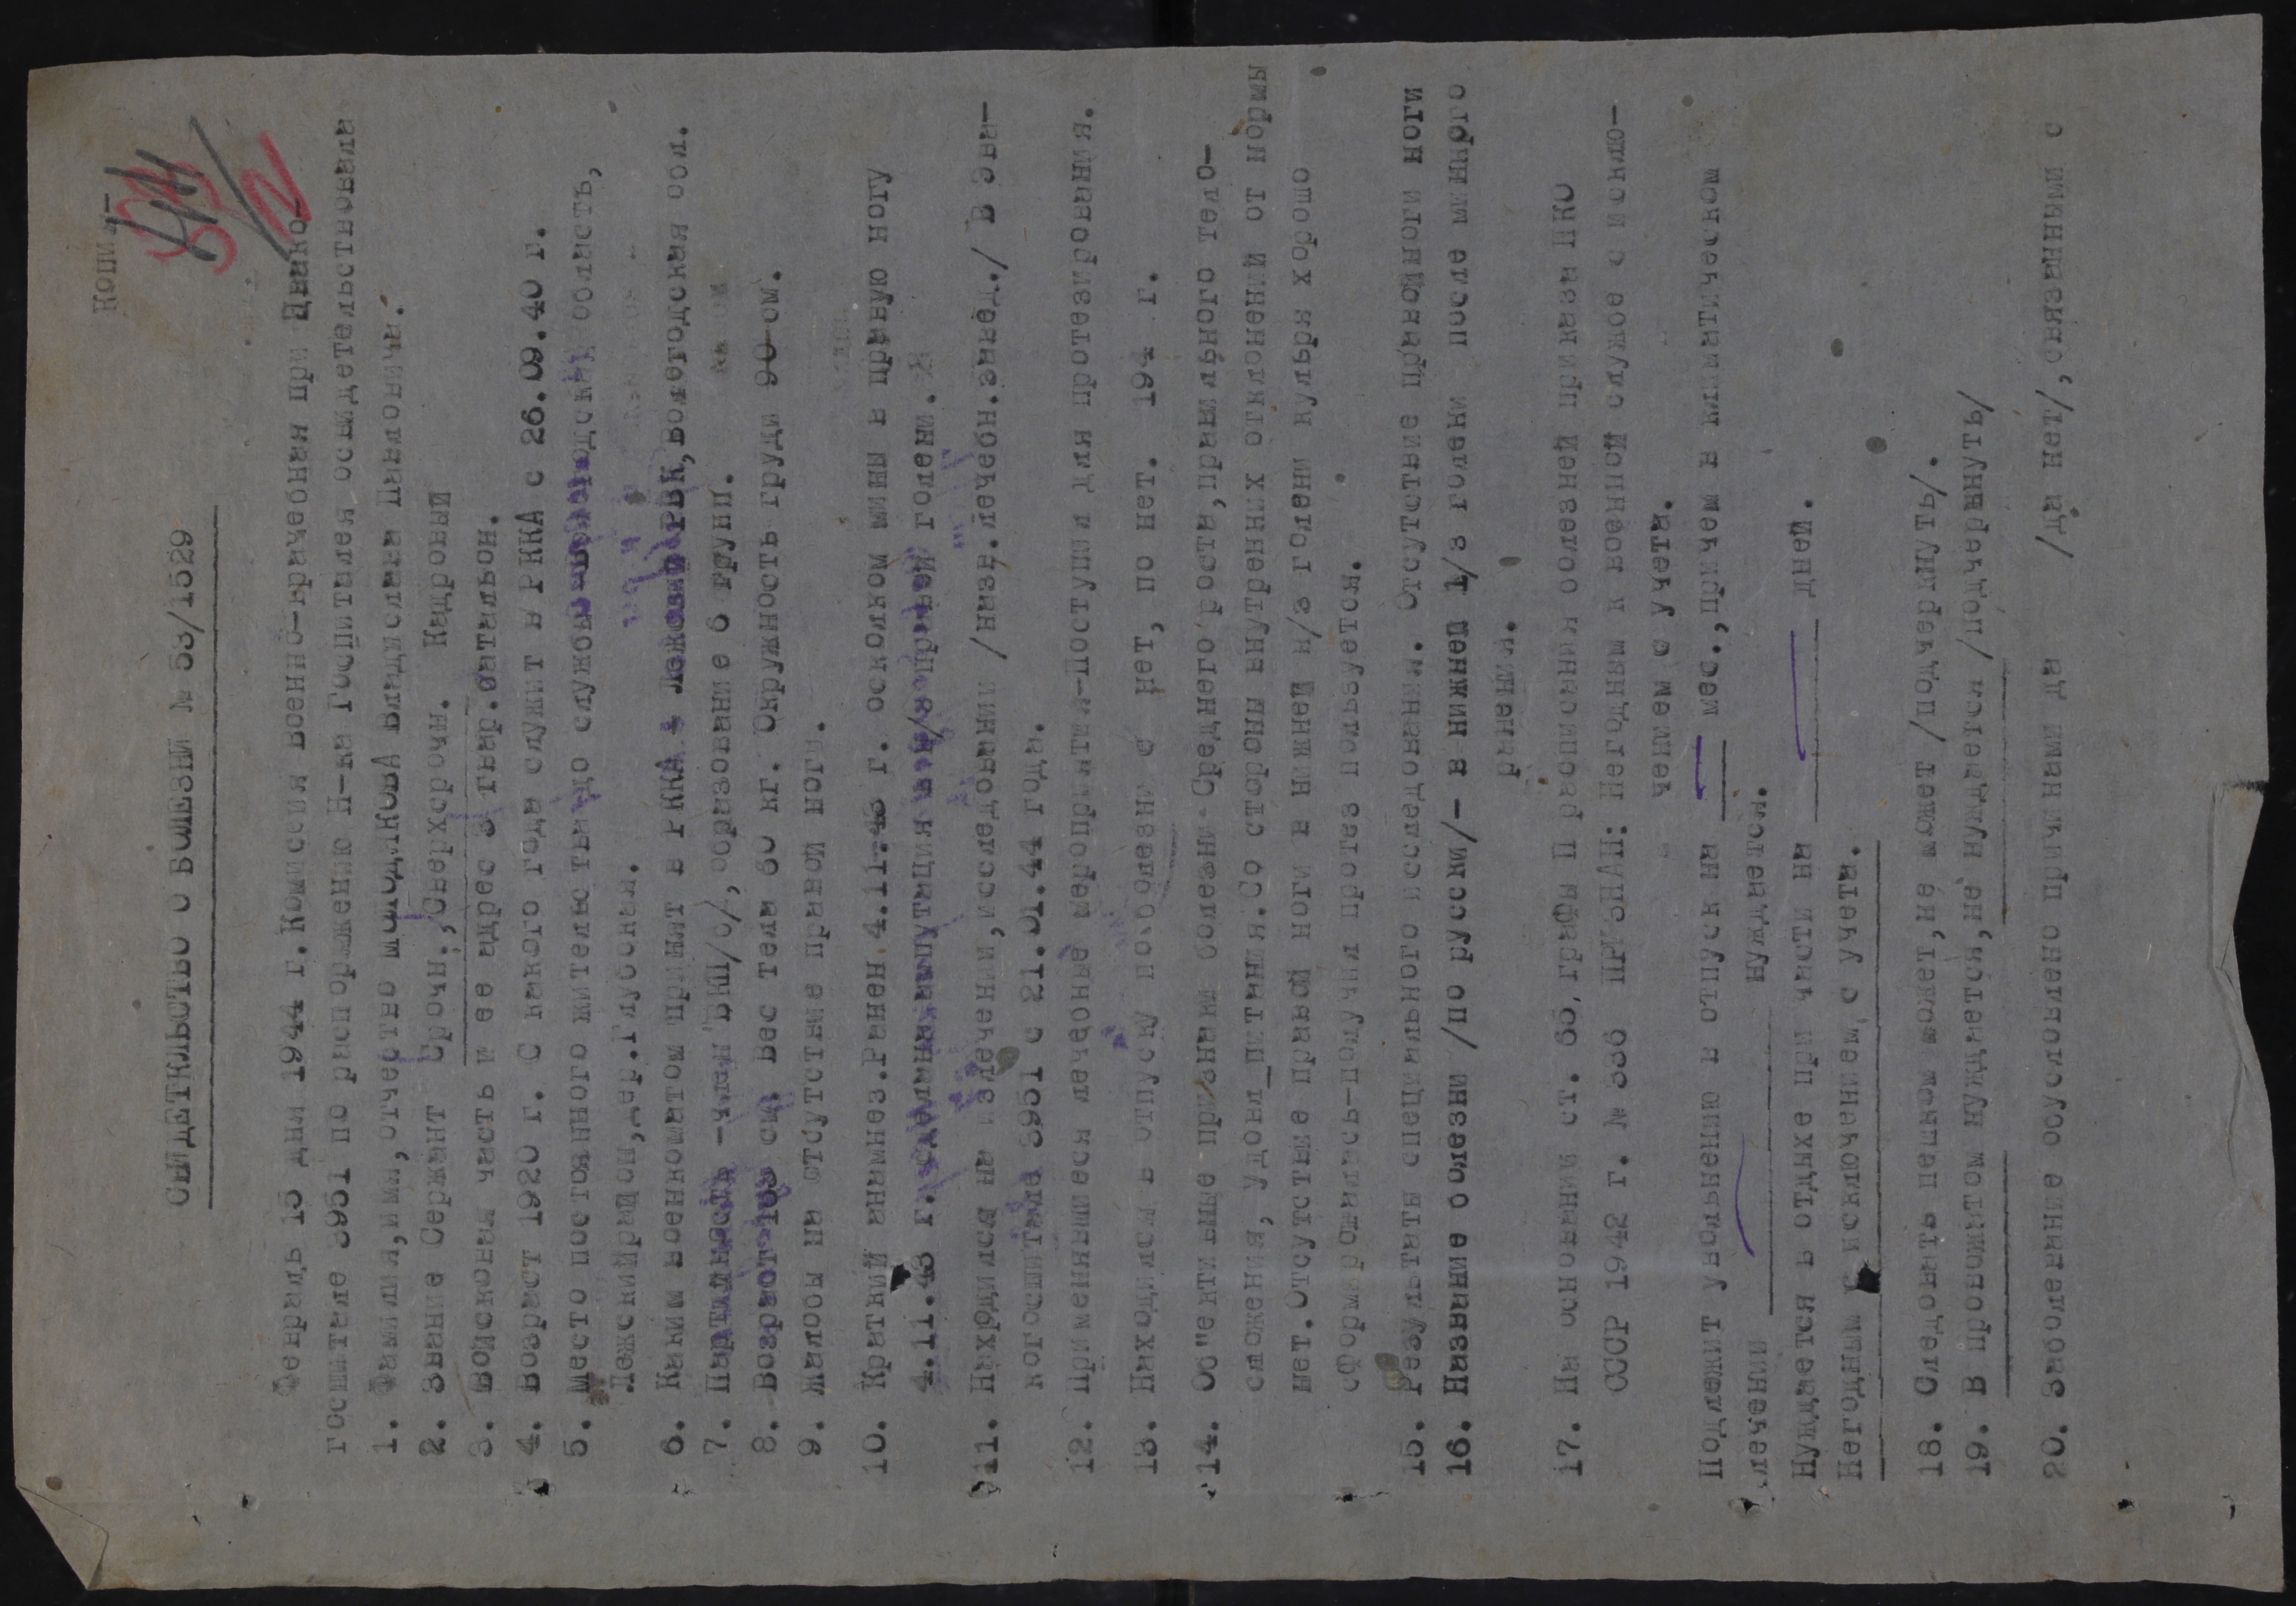 Копия-
СВИДЕТЕЛЬСТВО О БОЛЕЗНИ № 53/1529
Февраль 15 дня 1944 г. Комиссия военно-врачебная при Эвако-
госпитале 3951 по распоряжению Н-ка Госпиталя освидетельствовала
1. Фамилия, имя, отчество МОЛОДЦОВА Владислава
2. Звание Сержант Срочн., Сверхсрочн. Кадровый
3. Войсковая часть и ее адрес 3 гвар.батальон.
4. Возраст 1920 г. С какого года служит в РККА с 26.09.40 г.
5. Место постоянного жительства до службы- Вологодская область,
район, дер.Глубокая.
6. Каким военкоматом призват в РККА - РВК, Вологодская обл.
7. Партийность - член ВКП/б/, образование 6 групп.
8. Возраст 163 см. Вес тела 60 кг. Окружность груди 90 см.
9. Жалобы на отсутствие правой ноги.
10. Краткий анамнез. Ранен 4.11.43 г. осколком мины в правую ногу
4.11.43 г. ампутация н/з правой голени.
11. Находился на излечении, исследовании /назв.лечебн.завед./ В эва-
когоспитале 3951 с 21.01.44 года.
12. Применявшиеся лечебные мероприятия-Поступил для протезирования.
13. Находился в отпуску по болезни с нет, по нет. 194 г.
14. Об"ективные признаки болезни-Среднего роста, правильного тело-
сложения, удовл_питания. Со стороны внутренних отклонений от нормы
нет. Отсутствие правой ноги в нижней н/з голени культя хорошо
сформировалась-получил протез пользуется.
15. Результаты специального исследования. Отсутствие правой ноги ноги
16. Название болезни /по русски/- в нижней 1/3 голени после минного
ранения.
17. На основании ст. 65, графы П расписания болезней приказа НКО
СССР 1942 г. № 336 ПРИЗНАН: Негодным к военной службе с исклю-
чением с учета.
Подлежит увольнению в отпуск на мес., причем в климатическом
лечении нуждается.
Нуждается в отдыхе при части на дней.
Негодным с исключением, с учета.
18. Следовать пешком может, не может /подчеркнуть/.
19. В провожатом нуждается, не нуждается /подчеркнуть/
20. Заболевание обусловлено причинами да /да нет/, связанными с